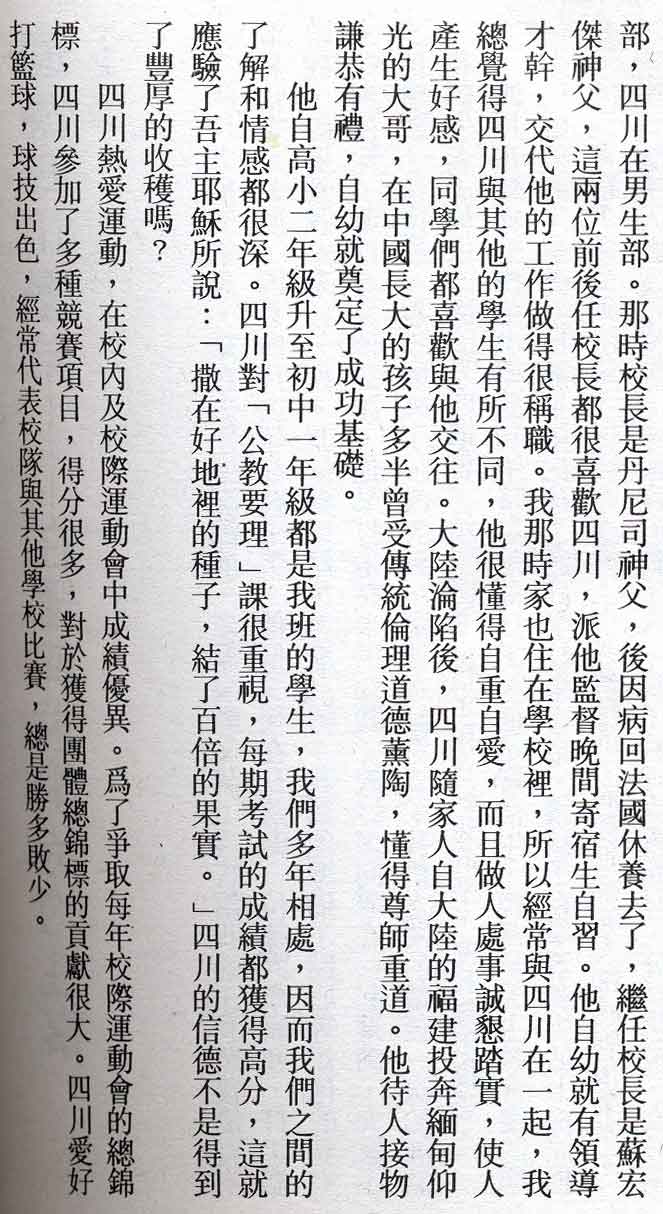 部，四川在男生部。那時校長是丹尼司神父，後因病回法國休養去了，繼任校長是蘇宏
傑神父，這兩位前後任校長都很喜歡四川，派他監督晚間寄宿生自習。他自幼就有領導
才幹，交代他的工作做得很稱職。我那時家也住在學校裡，所以經常與四川在一起，我
總覺得四川與其他的學生有所不同，他很懂得自重自愛，而且做人處事誠懇踏實，使人
產生好感，同學們都喜歡與他交往。大陸淪陷後，四川隨家人自大陸的福建投奔緬甸仰
光的大哥，在中國長大的孩子多半曾受傳統倫理道德薰陶，懂得尊師重道。他待人接物
謙恭有禮，自幼就奠定了成功基礎。
他自高小二年級升至初中一年級都是我班的學生，我們多年相處，因而我們之間的
了解和情感都很深。四川對「公教要理」課很重視，每期考試的成績都獲得高分，這就
應驗了吾主耶穌所說：「撒在好地裡的種子，結了百倍的果實。」四川的信德不是得到
了豐厚的收穫嗎？
四川熱愛運動，在校內及校際運動會中成績優異。爲了爭取每年校際運動會的總錦
標，四川參加了多種競賽項目，得分很多，對於獲得團體總錦標的貢獻很大。四川愛好
打籃球，球技出色，經常代表校隊與其他學校比賽，總是勝多敗少。